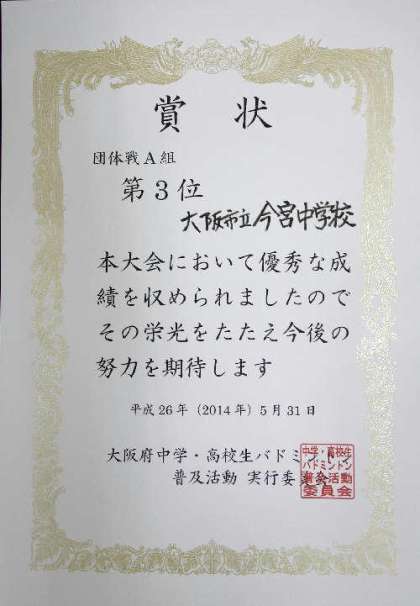 賞状
団体戦A組
第3位
大阪市立今宮中学校
本大会において優秀な成
績を収められましたので
その栄光をたたえ今後の
努力を期待します
平成26年(2014年)5月31日
大阪府中学・高校生バドミントン
普及活動 実行委員会
中学・高校生
バドミントン
普及活動
委員会